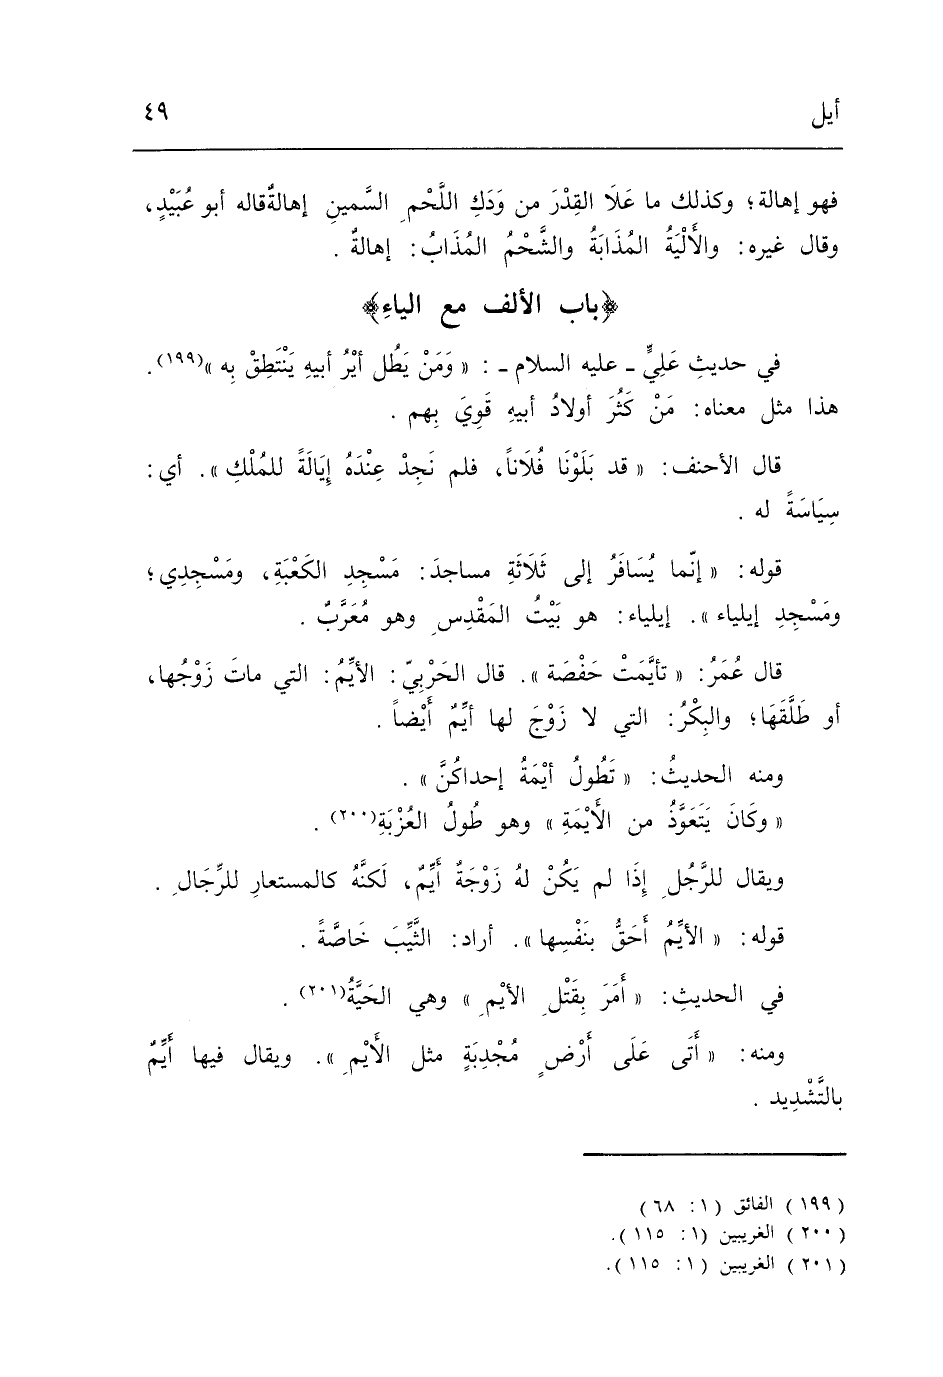 أيل ٤٩
فهو إهالة؛ وكذلك ما عَلَا القِدْرَ من وَدَكِ اللَّحْمِ السَّمينِ إهالةٌقاله أبو عُبَيْدٍ،
وقال غيره: والأَلْيَةُ المُذَابَةُ والشَّحْمُ المُذَابُ: إهالةٌ .
﴿باب الألف مع الياءِ﴾
في حديثِ عَلِيٍّ ـ عليه السلام ـ : « وَمَنْ يَطُل أيْرُ أبيهِ يَنْتَطِقْ بِه »(١٩٩).
هذا مثل معناه: مَنْ كَثُرَ أولادُ أبيهِ قَوِيَ بِهم .
قال الأحنف: « قد بَلَوْنَا فُلَاناً، فلم نَجِدْ عِنْدَهُ إيَالَةً للمُلْكِ ». أي:
سِيَاسَةً له .
قوله: « إنّما يُسَافَرُ إلى ثَلَاثَةِ مساجدَ: مَسْجِدِ الكَعْبَةِ، ومَسْجِدِي؛
ومَسْجِدِ إيلياء ». إيلياء: هو بَيْتُ المَقْدِسِ وهو مُعَرَّبٌ .
قال عُمَرُ: « تأيَّمَتْ حَفْصَة ». قال الحَرْبِيّ: الأيِّمُ: التي ماتَ زَوْجُها،
أو طَلَّقَهَا؛ والبِكْرُ: التي لا زَوْجَ لها أيِّمٌ أَيْضاً .
ومنه الحديثُ: « تَطُولُ أيْمَةُ إحداكُنَّ » .
« وكَانَ يَتَعَوَّذُ من الأَيْمَةِ » وهو طُولُ العُزْبَةِ(٢٠٠) .
ويقال للرَّجُلِ إِذَا لم يَكُنْ لهُ زَوْجَةٌ أَيِّمٌ، لَكنَّهُ كالمستعارِ للرِّجَالِ .
قوله: « الأيِّمُ أَحَقُّ بنَفْسِها ». أراد: الثَّيِّبَ خَاصَّةً .
في الحديثِ: « أَمَرَ بِقَتْلِ الأيْمِ » وهي الحَيَّةُ(٢٠١) .
ومنه: « أَتَى عَلَى أَرْضٍ مُجْدِبَةٍ مثل الأَيْمِ ». ويقال فيها أَيِّمٌ
بالتَّشْدِيد .
(١٩٩) الفائق (١: ٦٨)
(٢٠٠) الغريبين (١: ١١٥).
(٢٠١) الغريبين (١: ١١٥).